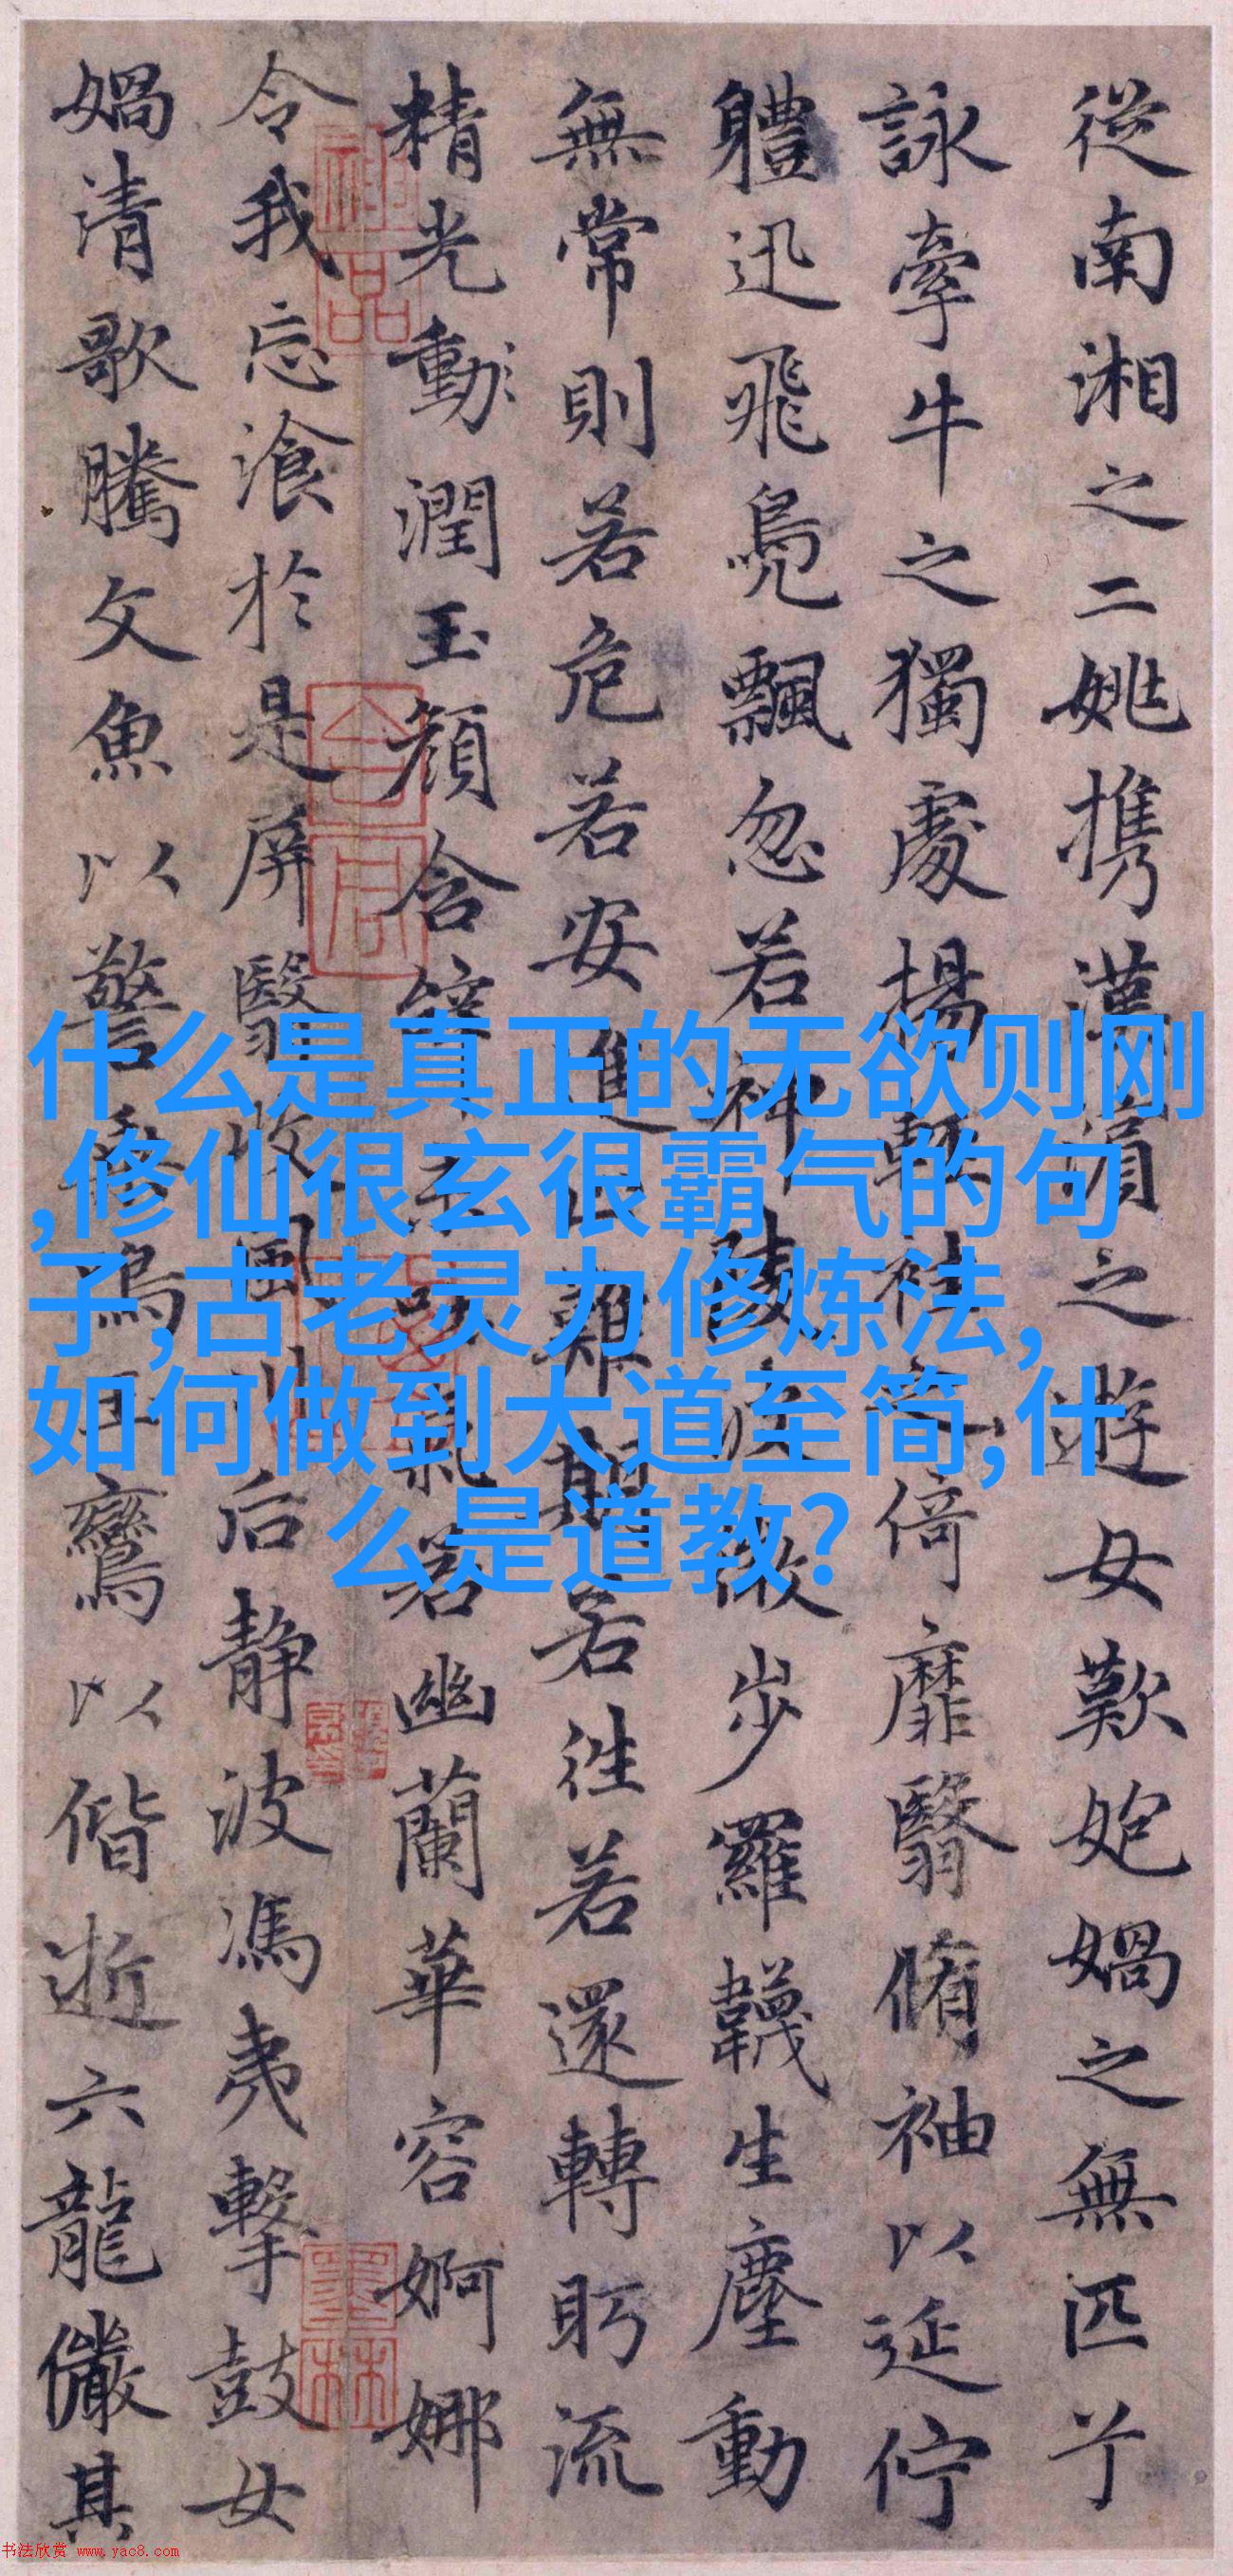 從南湘之二姚攜漢濱之遊女歎匏媧之無匹兮
詠牽牛之獨處揚輕袿之倚靡翳脩袖以延佇
體迅飛鳧飄忽若神陵波微步羅韈生塵動
無常則若危若安進止難期若往若還轉眄流
精光動潤玉顏含辭未吐氣若幽蘭華容婀娜
令我忘飡於是屏翳收風川后靜波馮夷擊鼓女
媧清歌騰文魚以警乘鳴玉鸞以偕逝六龍儼其
什么是真正的无欲则刚
,修仙很玄很霸气的句
子,古老灵力修炼法,
如何做到大道至简,什
么是道教?
书法欣赏 www.yac8.com